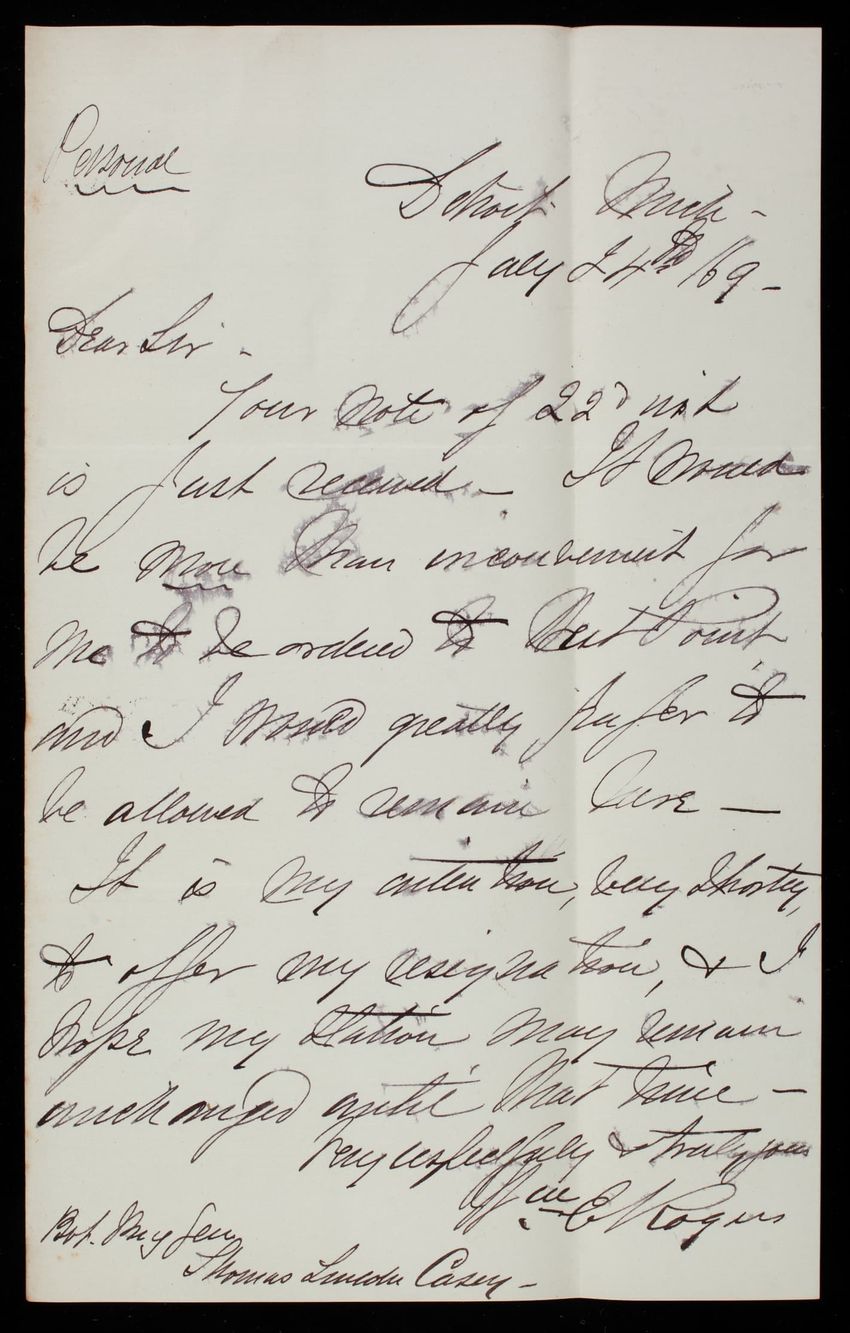 Personal
Detroit Mich -
July 24th /69 -
Dear Sir -
Your note of 22d inst
is just received - It would
be more than inconvenient for
me to be ordered to West Point
and I would greatly prefer to
be allowed to remain here -
It is my intention, very shortly,
to offer my resignation, & I
hope my station may remain
unchanged until that time -
Very respectfully & truly yours
Wm E Rogers
Bvt. Maj Gen
Thomas Lincoln Casey -